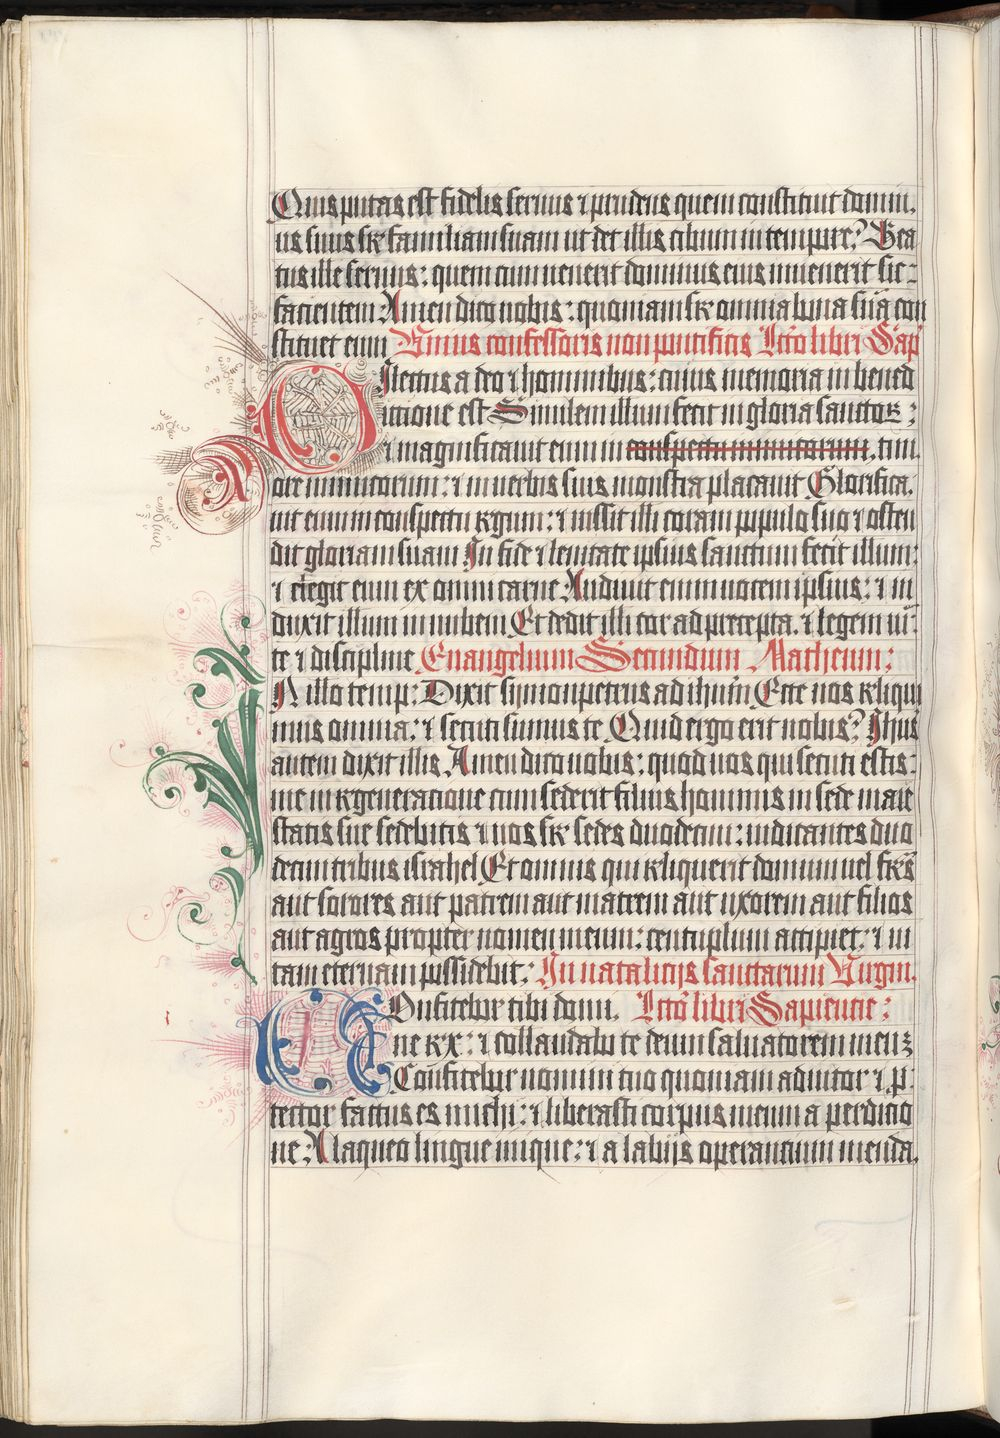 Quis putas est fidelis seruus ⁊ prudens quem constituit domin,
us suus sr familiam suam ut det illis cibum in tempore? Bea
tus ille seruus: quem cum uenerit dominus eius inuenerit sic-
facientem Amen dico uobis: quoniam sr omnia bona sua con
stituet eum Unius confessoris non pontificis Lcto libri Sap
Dilectus a deo ⁊ hominibus: cuius memoria in bened
ictione est Similem illum fecit in gloria sanctoꝝ;
⁊ magnificauit eum in conspectu inimicorum, tim
ore inimicorum: ⁊ in uerbis suis monstra placauit Glorifica,
uit eum in conspectu regum: ⁊ iussit illi coram populo suo ⁊ osten
dit gloriam suam In fide ⁊ lenitate ipsius sanctum fecit illum:
⁊ elegit eum ex omni carne Audiuit eum uocem ipsius: ⁊ in
duxit illum in nubem Et dedit illi cor ad precepta. ⁊ legem ui-
te ⁊ discipline Euangelium Secundum Matheum:
IN illo temp: Dixit symon petrus ad ihum Ecce nos reliqui
mus omnia: ⁊ secuti sumus te Quid ergo erit nobis? Ihus
autem dixit illis Amen dico uobis: quod uos qui secuti estis:
me in regeneracione cum sederit filius hominis in sede maie
statis sue sedebitis ⁊ uos sr sedes duodecim: iudicantes duo
decim tribus israhel Et omnis qui reliquerit domum uel frēs
aut sorores aut patrem aut matrem aut uxorem aut filios
aut agros propter nomen meum: centuplum accipiet: ⁊ ui
tam eternam possidebit: In natalicijs sanctarum Virgin.
COnfitebor tibi domi. Lcto libri Sapiencie:
ne rex: ⁊ collaudabo te deum saluatorem meuꝫ
Confitebor nomini tuo quoniam adiutor ⁊ p̄-
tector factus es michi: ⁊ liberasti corpus meum a perdicio
ne A laqueo lingue inique: ⁊ a labijs operancium menda,